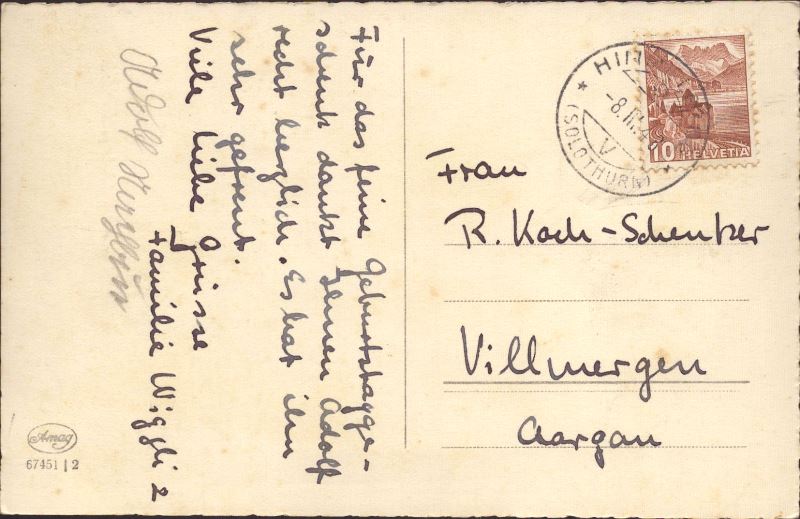 Für das feine Geburtstagge-
schenk dankt Ihnen Adolf
recht herzlich. Es hat ihn
sehr gefreut.
Viele liebe Grüsse
Familie Wiggli
Adolf
HIN
-8.III.4
V
(SOLOTHURN)
10 HELVETIA
Frau
R. Koch-Schenker
Villmergen
Aargau
Amag
67451 | 2